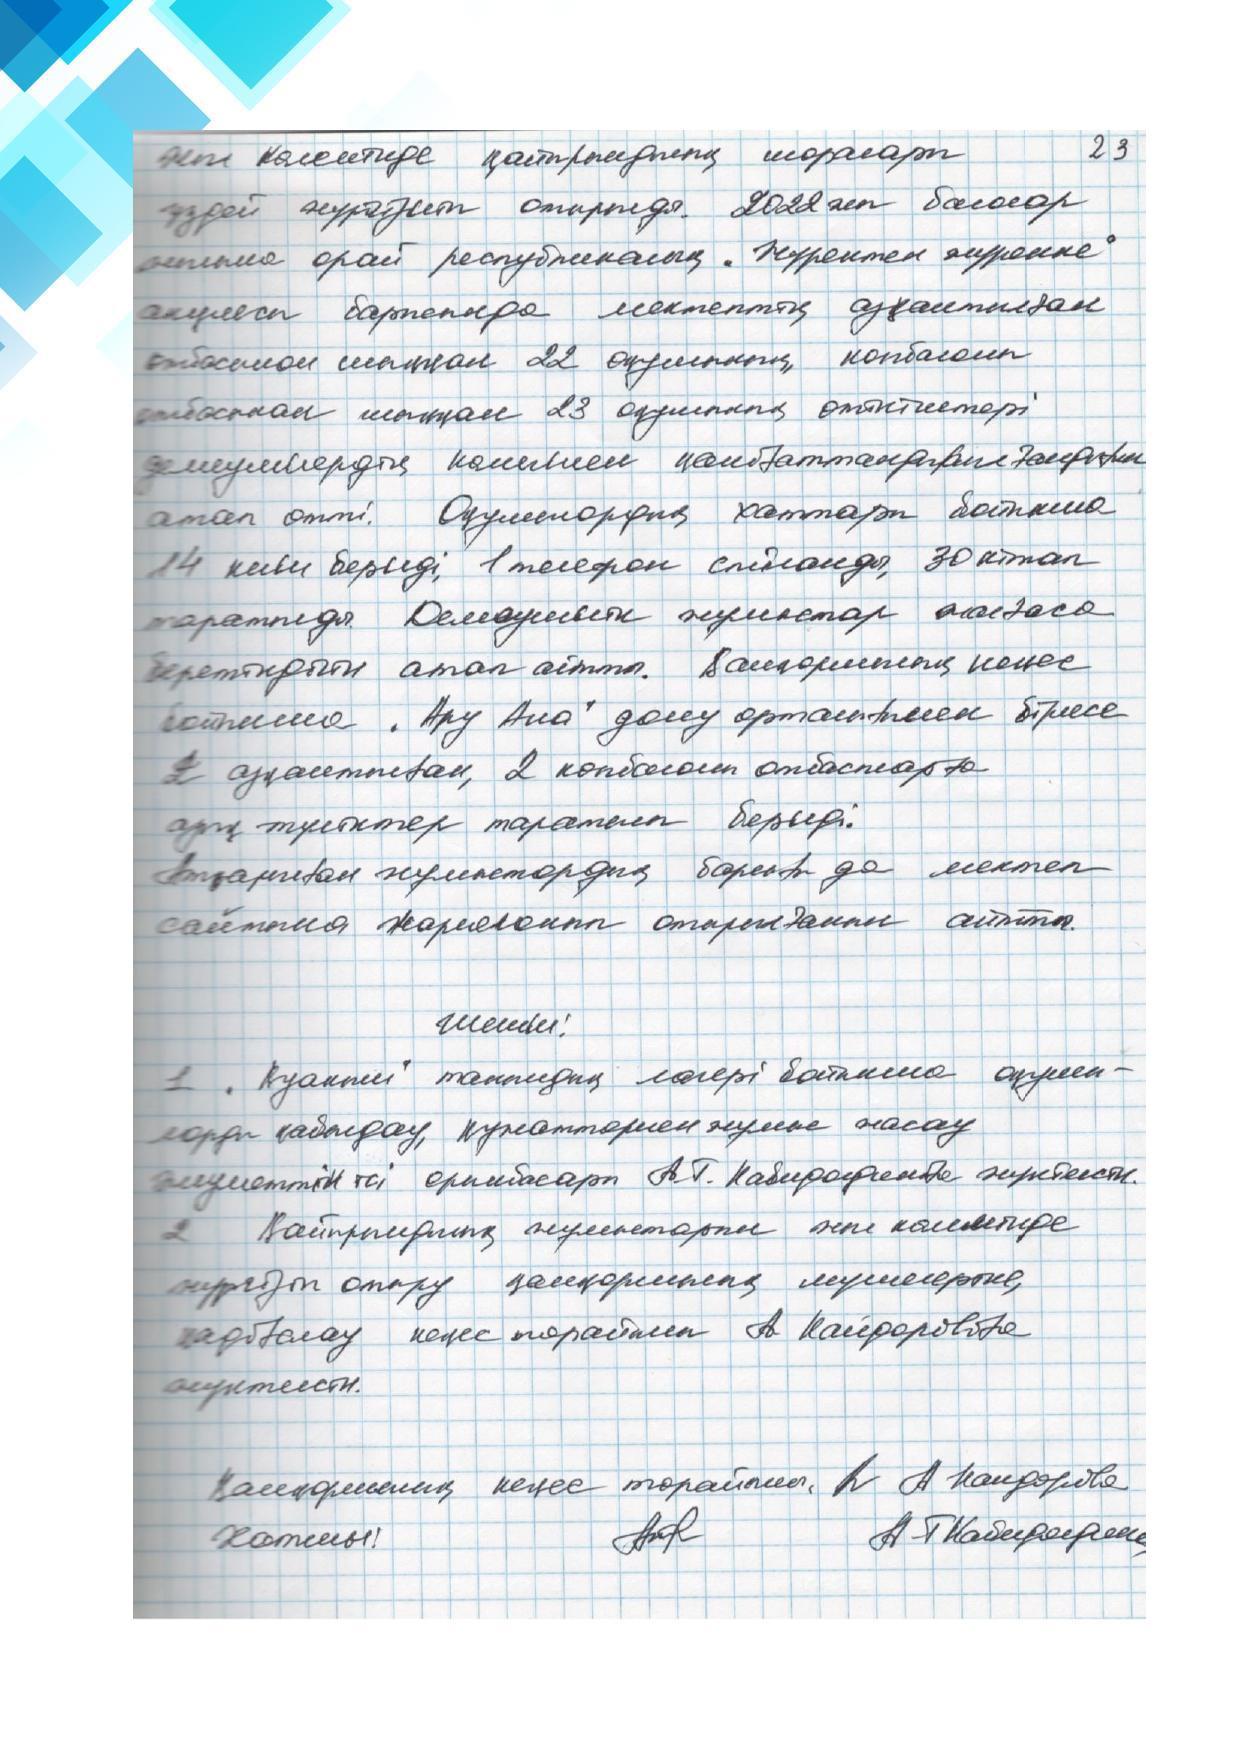 23
жыл көлемінде қайырымдылық шаралары
үздей жүргізіліп отырылды. 2022 жыл балалар
жылына орай республикалық "Жүректен жүрекке"
акциясы барысында мектептің аз қамтылған
отбасынан шыққан 22 оқушының, көпбалалы
отбасынан шыққан 23 оқушының өтініштері
демеушілердің көмегімен қанағаттандырылғандығын
атап өтті. Оқушылардың хаттары бойынша
14 киім берілді, 1 телефон сыйланды, 30 кітап
таратылды. Демеушілік жұмыстар жалғаса
беретіндігін атап айтты. Қамқоршылық кеңес
бойынша "Ару Ана" даму орталығымен бірлесе
2 аз қамтылған, 2 көпбалалы отбасыларға
азық түліктер таратылып берілді.
Атқарылған жұмыстардың барлығы да мектеп
сайтына жарияланып отырылғанын айтты.
Шешімі:
1 "Қуаныш" таңғыдық лагері бойынша оқушы-
ларды қабылдау, құжаттармен жұмыс жасау
әлеуметтік ісі орынбасары А.Т. Кабидофинаға жүктелсін.
2 Қайырымдылық жұмыстарын жыл көлемінде
жүргізіп отыру қамқоршылық мүшелеріне,
қадағалау кеңес төрайымы А Кайдароваға
жүктелсін.
Қамқоршылық кеңес төрайымы: А Кайдарова
Хатшы: А Т Кабидофина